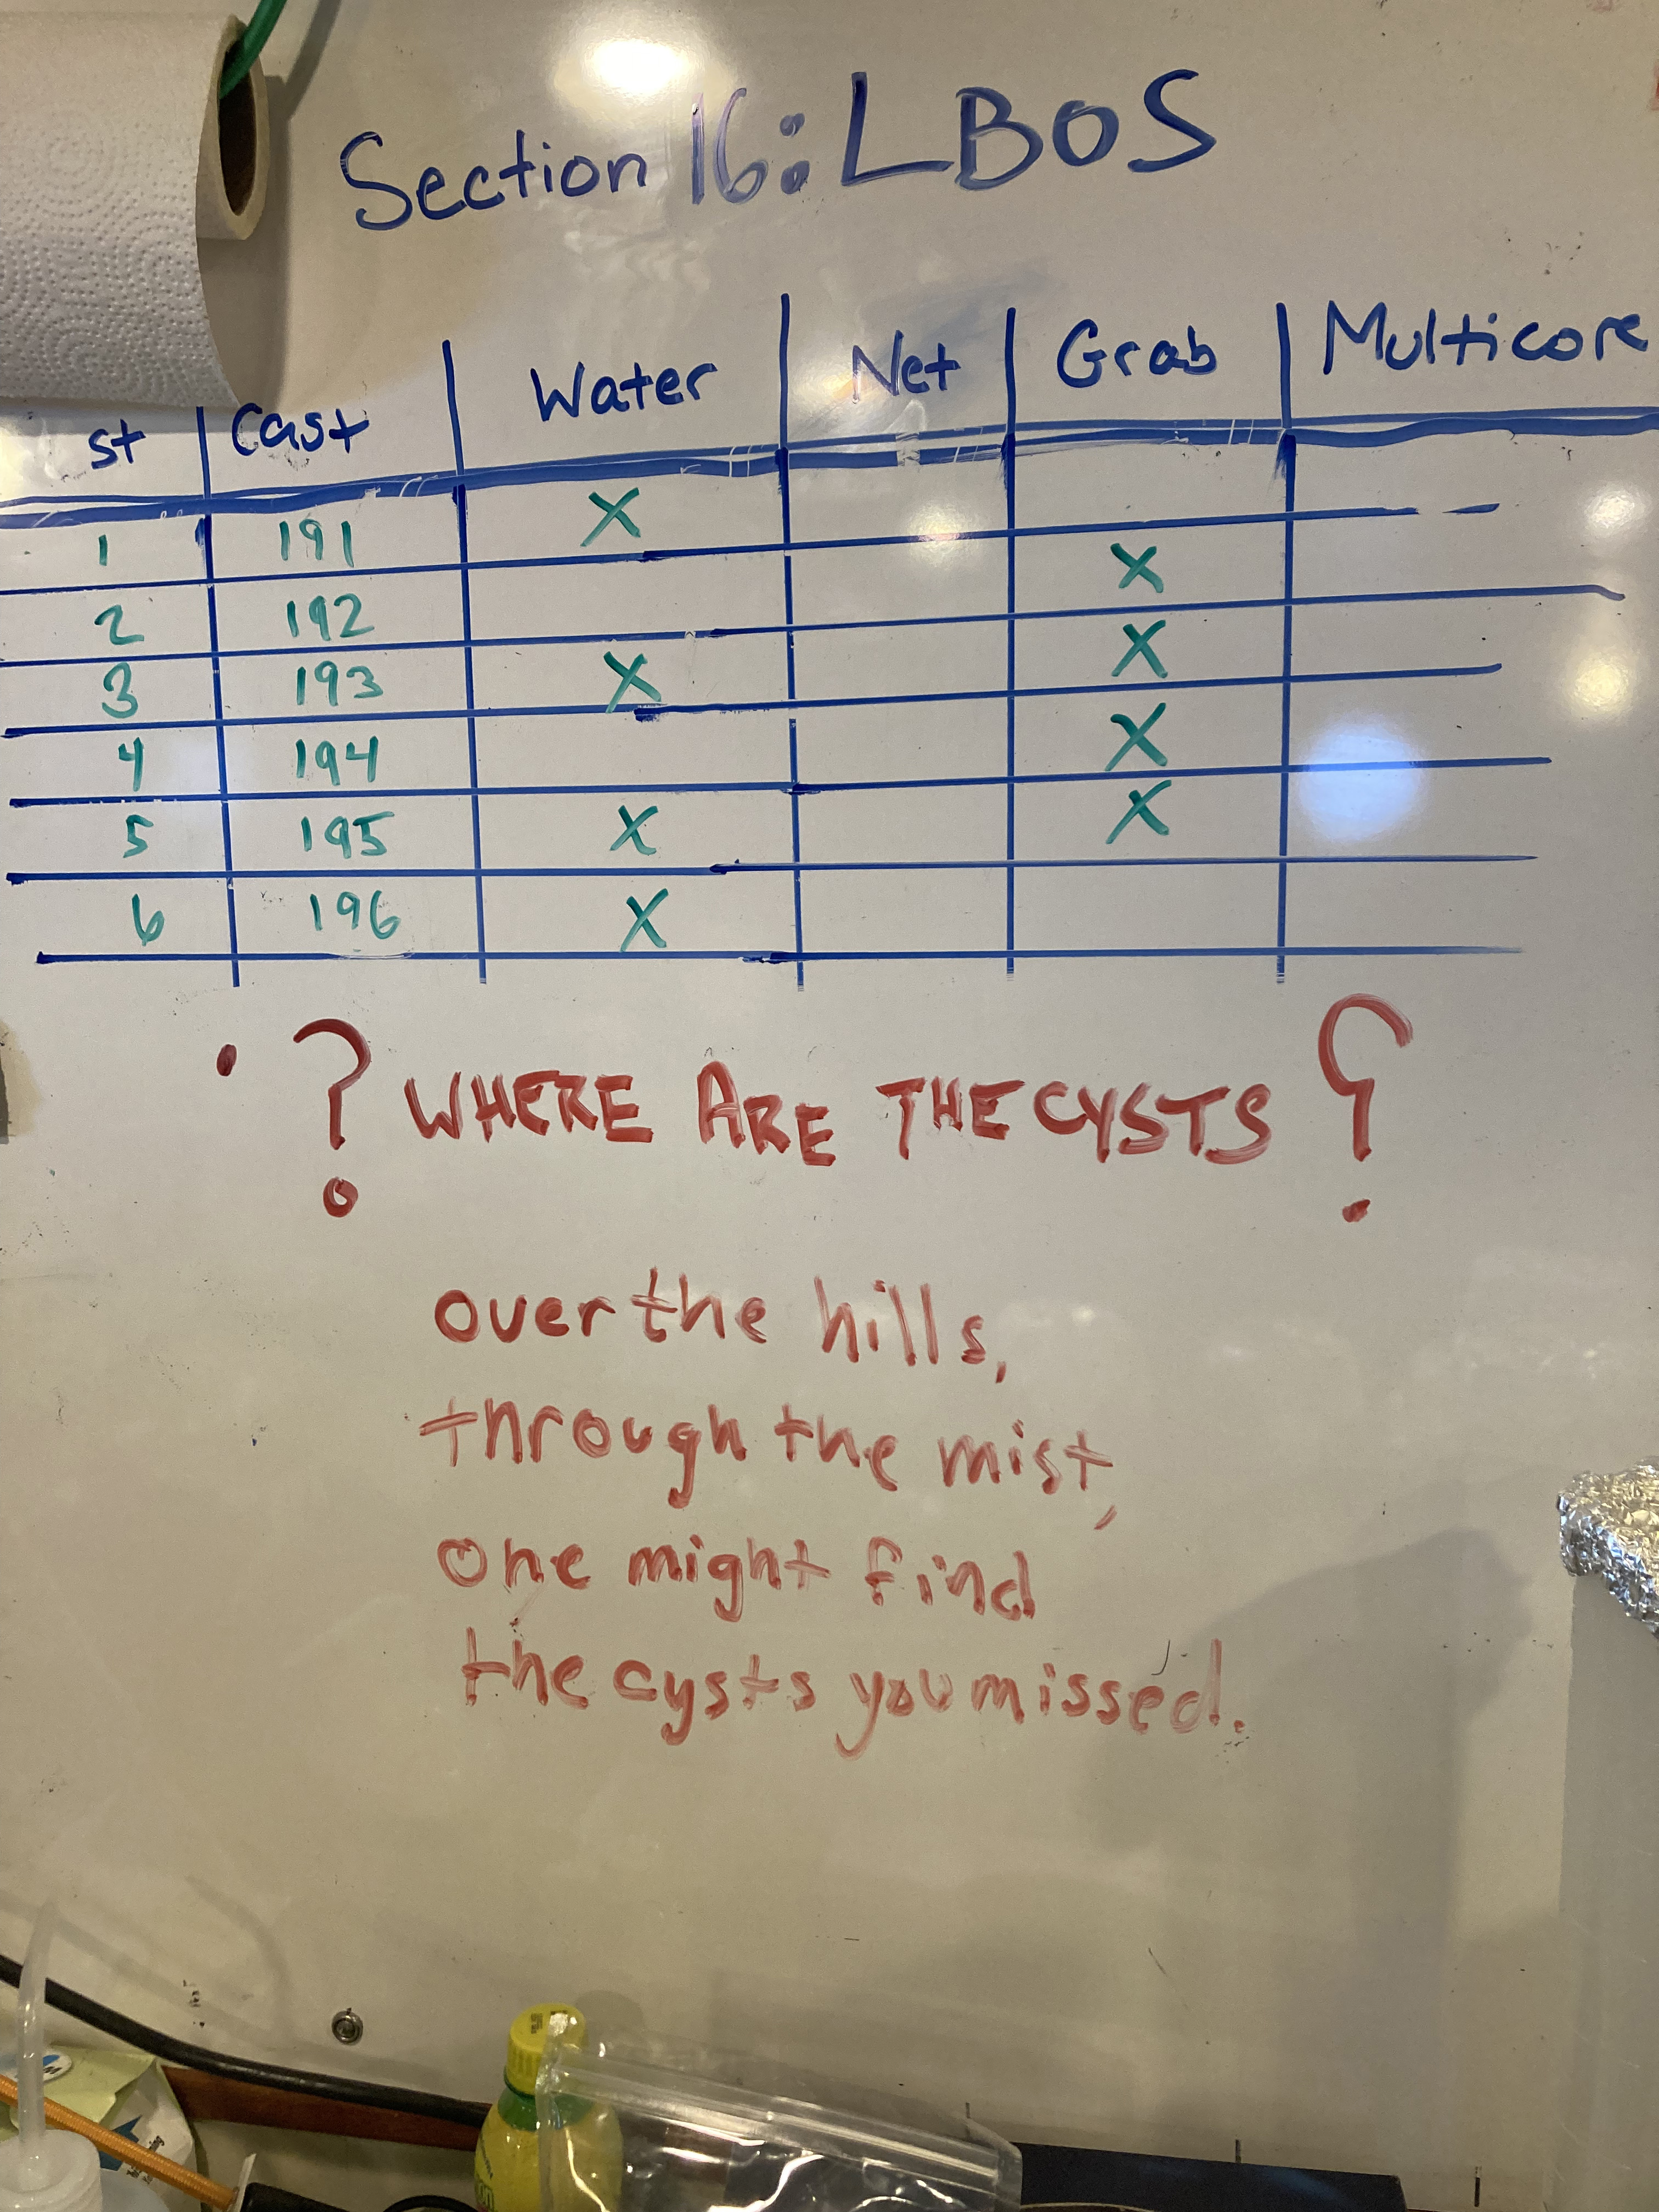 Section 16: LBOS
st Cast Water Net Grab Multicore
1 191 X
2 192 X
3 193 X X
4 194 X
5 195 X X
6 196 X
? WHERE ARE THE CYSTS ?
over the hills,
through the mist,
one might find
the cysts you missed.